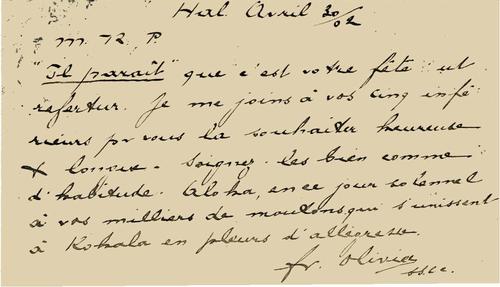 Hal. Avril 30/02
M. R. P.
"Il paraît" que c'est votre fête ut
refertur. Je me joins à vos cinq infé
rieurs pr vous la souhaiter heureuse
& longue. Soignez-les bien comme
d'habitude. Aloha, en ce jour solennel
à vos milliers de moutons qui s'unissent
à Kohala en pleurs d'allégresse
fr. Olivia
ss.cc.